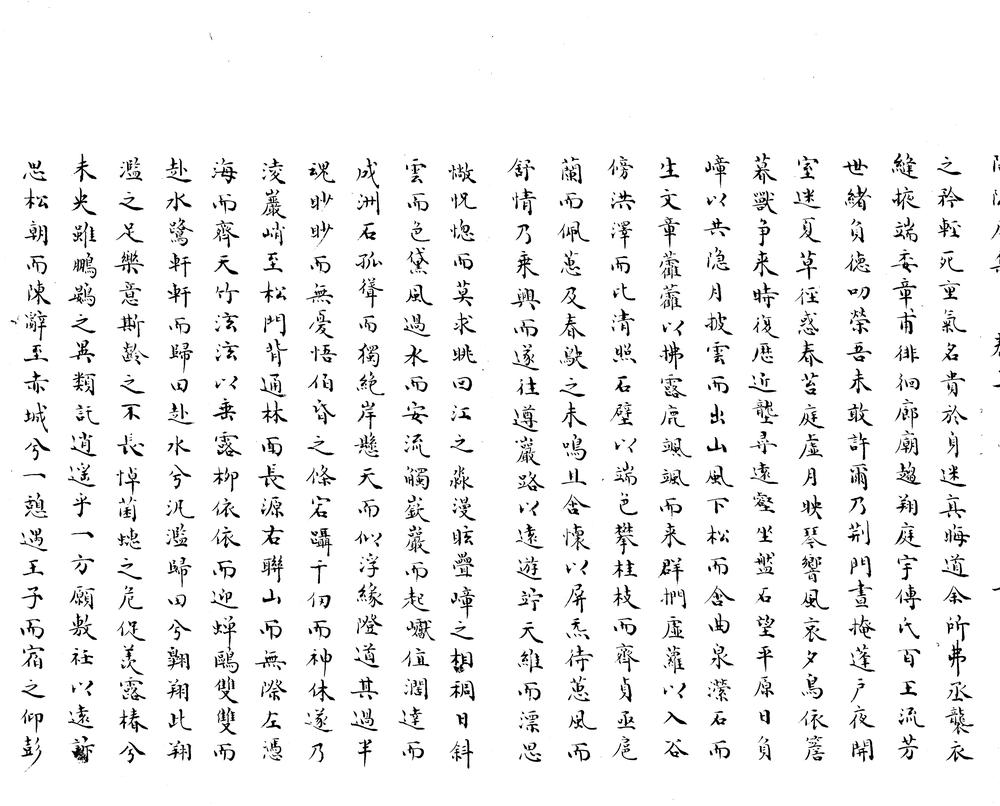 之矜輕死重氣名貴於身迷真晦道余所弗丞襲衣
縫掖端委章甫徘徊廊廟趨翔庭宇傳氏百王流芳
世緒負德叨榮吾未敢許爾乃荆門晝掩蓬戸夜開
室迷夏草徑惑春苔庭虚月映琴響風哀夕鳥依簷
暮獸争来時復歷近壟尋遠壑坐盤石望平原日負
嶂以共隐月披雲而出山風下松而含曲泉瀠石而
生文章藿藿以拂露鹿飒飒而来群捫虚蘿以入谷
傍洪澤而比清照石壁以端色攀桂枝而齊貞亟扈
蘭而佩蕙及春鴃之未鳴且含懷以屏炁待蕙風而
舒情乃乗興而遂往遵巖路以遠遊竚天維而漂思
憿怳惚而莫求眺曰江之淼漫眩疊嶂之相稠日斜
雲而色黛風過水而安流觸嶔巖而起巘值濶達而
成洲石孤聳而獨絶岸懸天而似浮緣隥道其過半
魂眇眇而無憂悟伯昏之條宕躡千仞而神休遂乃
淩巖峭至松門背通林面長源右聯山而無際左憑
海而齊天竹泫泫以垂露柳依依而迎蟬鷗雙雙而
赴水鷺軒軒而歸田赴水兮汎濫歸田兮翺翔此翔
濫之足樂意斯齡之不長悼菌蟪之危促羡露椿兮
未央雖鵬鷃之異類託逍遥乎一方願敷衽以遠訢
思松朝而陳辭至赤城兮一憩遇王子而宿之仰彭